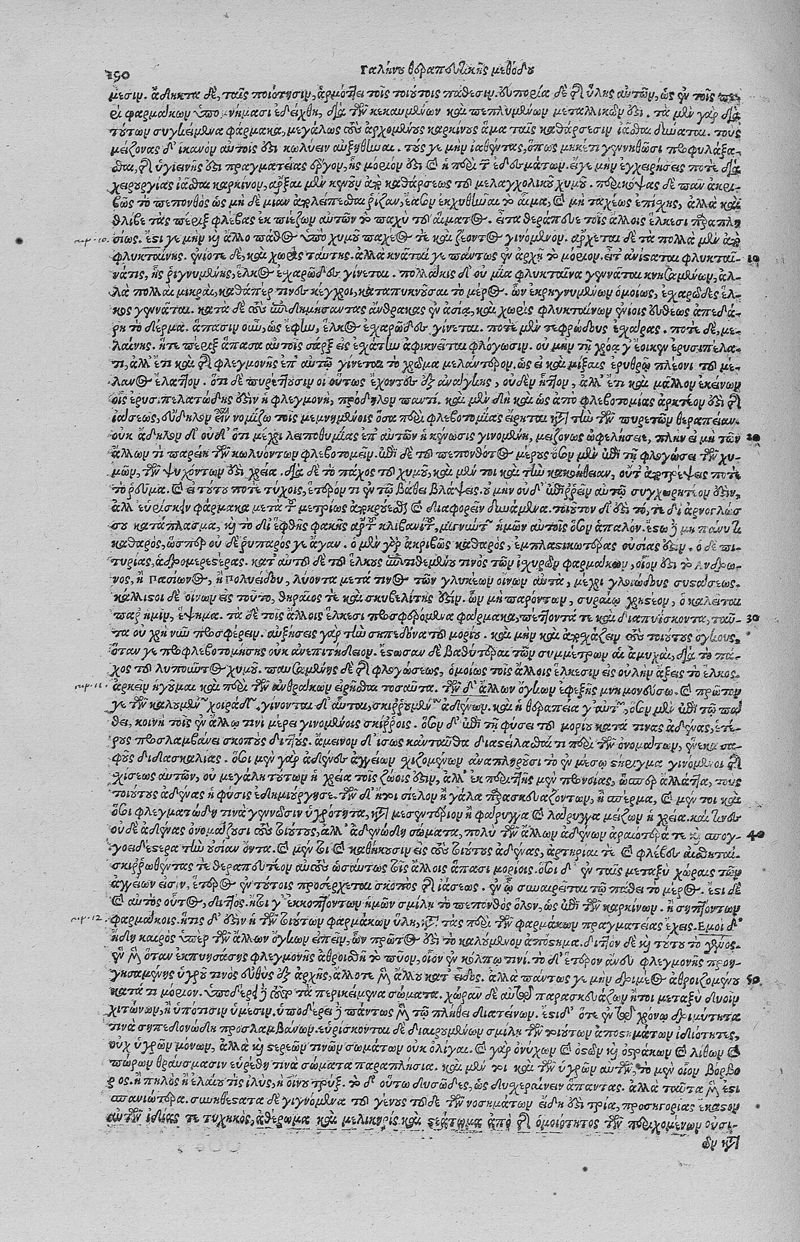 190 Γαλήνου θεραπευτικῆς μεθόδου
μεσιν. ἄδηκτα δὲ, ταῖς ποιότησιν, ἁρμόττει τοῖς τοιούτοις πάθεσιν. εὐπορία δὲ τῆς ὕλης αὐτῶν, ὡς ἐν τοῖς πε-
ρὶ φαρμάκων ὑπομνήμασι ἐδείχθη, διὰ τῶν κεκαυμένων καὶ πεπλυμένων μεταλλικῶν ἐστι. τὰ μὲν γὰρ διὰ
τούτων συγκείμενα φάρμακα, μεγάλως τοὺς ἀρχομένους καρκίνους ἅμα ταῖς καθάρσεσιν ἰᾶσθαι δύναται. τοὺς
μείζονας δ' ἱκανὸν αὐτοῖς ἐστι κωλύειν αὐξηθῆναι. τοὺς γε μὴν ἰαθέντας, ὅπως μηκέτι γεννηθῶσι προφυλάξα-
σθαι, τῆς ὑγιεινῆς ἐστι πραγματείας ἔργον, ἧς μόριόν ἐστι καὶ ἡ περὶ τῶν ἐδεσμάτων. εἴ γε μὴν ἐγχειρήσεις ποτὲ διὰ
χειρουργίας ἰᾶσθαι καρκίνον, ἄρξαι μὲν κενοῦν ἀπὸ καθάρσεως τοῦ μελαγχολικοῦ χυμοῦ. περικόψας δὲ πᾶν ἀκρι-
βῶς τὸ πεπονθὸς ὡς μὴ δὲ μίαν ἀπολείπεσθαι ῥίζαν, ἔασον ἐκχυθῆναι τὸ αἷμα, καὶ μὴ ταχέως ἐπίσχῃς, ἀλλὰ καὶ
θλίβε τὰς πέριξ φλέβας ἐκπιέζων αὐτῶν τὸ παχὺ τοῦ αἵματος. εἶτα θεράπευε τοῖς ἄλλοις ἕλκεσι παραπλη
κεφ. 10. σίως. ἔστι γε μὴν καὶ ἄλλο πάθος ὑπὸ χυμοῦ παχέος τε καὶ ζέοντος γινόμενον. ἄρχεται δὲ τὰ πολλὰ μὲν ἀπὸ
φλυκταίνης. ἐνίοτε δὲ, καὶ χωρὶς ταύτης. ἀλλὰ κνᾶταί γε πάντως ἐν ἀρχῇ τὸ μόριον. εἶτ' ἀνίσταται φλυκταί- 10
να τις, ἧς ῥηγνυμένης, ἕλκος ἐσχαρῶδες γίνεται. πολλάκις δ' οὐ μία φλύκταινα γεννᾶται κνησαμένων, ἀλ-
λὰ πολλαὶ μικραὶ, καθάπερ τινὲς κέγχροι, καταπυκνοῦσαι τὸ μέρος. ὧν ἐκρηγνυμένων ὁμοίως, ἐσχαρῶδες ἕλ-
κος γεννᾶται. κατὰ δὲ τοὺς ἐπιδημήσαντας ἄνθρακας ἐν ἀσίᾳ, καὶ χωρὶς φλυκταινῶν ἐνίοις εὐθέως ἀπεδά-
ρη τὸ δέρμα. ἅπασιν οὖν, ὡς ἔφην, ἕλκος ἐσχαρῶδες γίνεται. ποτὲ μὲν τεφρώδους ἐσχάρας. ποτὲ δὲ, με-
λαίνης. ἥ τε πέριξ ἅπασα αὐτοῖς σὰρξ εἰς ἐσχάτην ἀφικνεῖται φλόγωσιν. οὐ μὴν τῇ χρόᾳ γ' ἔοικεν ἐρυσιπέλα-
τι, ἀλλ' ἔτι καὶ τῆς φλεγμονῆς ἐπ' αὐτῷ γίνεται τὸ χρῶμα μελάντερον, ὡς εἰ καὶ μίξαις ἐρυθρῷ πλέονι τοῦ μέ-
λανος ἔλαττον. ὅτι δὲ πυρέττουσιν οἱ οὕτως ἔχοντες ἐξ ἀνάγκης, οὐδὲν ἧττον, ἀλλ' ἔτι καὶ μᾶλλον ἐκείνων
οἷς ἐρυσιπελατώδης ἐστὶν ἡ φλεγμονὴ, πρόδηλον παντί. καὶ μὲν δὴ καὶ ὡς ἀπὸ φλεβοτομίας ἀρκτέον ἐστὶ τῆς
ἰάσεως, εὔδηλον εἶναι νομίζω τοῖς μεμνημένοις ὅσα περὶ φλεβοτομίας εἴρηται κατὰ τὴν τῶν πυρετῶν θεραπείαν.
οὐκ ἄδηλον δ' οὐδ' ὅτι μέχρι λειποθυμίας ἐπ' αὐτῶν ἡ κένωσις γινομένη, μειζόνως ὠφελήσει, πλὴν εἰ μὴ τῶν 20
ἄλλων τι παρείη τῶν κωλυόντων φλεβοτομεῖν. ἐπὶ δὲ τοῦ πεπονθότος μέρους ὅσον μὲν ἐπὶ τῇ φλογώσει τῶν χυ-
μῶν, τῶν ψυχόντων ἐστὶ χρεία. διὰ δὲ τὸ πάχος τοῦ χυμοῦ, καὶ μέν τοι καὶ τὴν κακοήθειαν, οὔτ' ἀποτρέψεις ποτὲ
τὸ ῥεῦμα. καὶ εἰ τούτου ποτὲ τύχοις, ἕτερόν τι ἐν τῷ βάθει βλάψεις. οὐ μὴν οὐδ' ἐπιῤῥεῖν αὐτῷ συγχωρητέον ἐστὶν,
ἀλλ' εὑρίσκειν φάρμακα μετὰ τοῦ μετρίως ἀποκρούεσθαι καὶ διαφορεῖν δυνάμενα. τοιοῦτον δ' ἐστὶ τό, τε δι' ἀρνογλώσ-
σου κατάπλασμα, καὶ τὸ δι' ἑφθῆς φακῆς ἄρτου κλιβανίτου, μιγνύντων ἡμῶν αὐτοῖς ὅσον ἁπαλόν. ἔστω δὲ μὴ πάνυ τι
καθαρὸς, ὥσπερ οὐ δὲ ῥυπαρός γε ἄγαν. ὁ μὲν γὰρ ἀκριβῶς καθαρὸς, ἐμπλαστικωτέρας οὐσίας ἐστίν. ὁ δὲ πι-
τυρίας, ἁδρομερεστέρας. κατ' αὐτοῦ δὲ τοῦ ἕλκους ἐπιτιθεμένου τινὸς τῶν ἰσχυρῶν φαρμάκων, οἷόν ἐστι τὸ Ἄνδρω-
νος, ἢ Πασίωνος, ἢ Πολυείδου, λύοντα μετά τινος τῶν γλυκέων οἴνων αὐτὰ, μέχρι γλοιώδους συστάσεως.
κάλλιστοι δὲ οἶνοι εἰς τοῦτο, θηραῖός τε καὶ σκυβελίτης ἐστίν. ὧν μὴ παρόντων, συραίῳ χρηστέον, ὃ καλεῖται
παρ' ἡμῖν, ἕψημα. τὰ δὲ τοῖς ἄλλοις ἕλκεσι προσφερόμενα φάρμακα, πέττοντά τε καὶ διαπυΐσκοντα, ταῦ- 30
τα οὐ χρὴ νῦν προσφέρειν. αὐξήσεις γὰρ τὴν σηπεδόνα τοῦ μορίου. καὶ μὴν καὶ ἀποσχάζειν τοὺς τοιούτους ὄγκους,
ὅταν γε προφλεβοτομήσῃς οὐκ ἀνεπιτήδειον. ἔστωσαν δὲ βαθύτεραι τῶν συμμέτρων αἱ ἀμυχαὶ, διὰ τὸ πά-
χος τοῦ λυποῦντος χυμοῦ. παυσαμένης δὲ τῆς φλογώσεως, ὁμοίως τοῖς ἄλλοις ἕλκεσιν εἰς οὐλὴν ἄξεις τὸ ἕλκος.
κεφ. 11. ἀρκεῖν ἡγοῦμαι καὶ περὶ τῶν ἀνθράκων εἰρῆσθαι τοσαῦτα. τῶν δ' ἄλλων ὄγκων ἐφεξῆς μνημονεύσω. καὶ πρῶτόν
γε τῶν καλουμένων χοιράδων. γίνονται δ' αὗται, σκιῤῥουμένων ἀδένων. καὶ ἡ θεραπεία γ' αὐτῶν, ὅσον μὲν ἐπὶ τῷ πά-
θει, κοινὴ τοῖς ἐν ἄλλῳ τινὶ μέρει γινομένοις σκίῤῥοις. ὅσον δ' ἐπὶ τῇ φύσει τοῦ μορίου κατά τινας ἀδένας, ἑτέ-
ρους προσλαμβάνει σκοποὺς διττούς. ἄμεινον δ' ἴσως κἀνταῦθα διαστείλασθαί τι περὶ τῶν ὀνομάτων, ἕνεκα σα-
φοῦς διδασκαλίας. ὅσοι μὲν γὰρ ἀδένες ἀγγείων σχιζομένων ἀναπληροῦσι τὸ ἐν μέσῳ στήριγμα γινόμενοι τῆς
σχίσεως αὐτῶν, οὐ μεγάλη τούτων ἡ χρεία τοῖς ζώοις ἐστὶν, ἀλλ' ἐκ περιττῆς μὲν προνοίας, ὥσπερ ἄλλα τινὰ, τοὺς
τοιούτους ἀδένας ἡ φύσις ἐδημιούργησε. τῶν δ' ἤτοι σίελον ἢ γάλα παρασκευαζόντων, ἢ σπέρμα, καὶ μέν τοι καὶ
ὅσοι φλεγματώδη τινὰ γεννῶσιν ὑγρότητα, κατὰ μεσεντέριον ἢ φάρυγγα καὶ λάρυγγα μείζων ἡ χρεία. καὶ τινὲς
οὐδὲ ἀδένας ὀνομάζουσι τοὺς τοιούτους, ἀλλ' ἀδενώδη σώματα, πολὺ τῶν ἄλλων ἀδένων ἀραιότερά τε καὶ σπογ- 40
γοειδέστερα τὴν οὐσίαν ὄντα. καὶ μέν τοι καὶ καθήκουσιν εἰς τοὺς τοιούτους ἀδένας, ἀρτηρίαι τε καὶ φλέβες αἰσθηταί.
σκιῤῥωθέντας τε θεραπευτέον αὐτοὺς ὡσαύτως τοῖς ἄλλοις ἅπασι μορίοις. ὅσοι δ' ἐν ταῖς μεταξὺ χώραις τῶν
ἀγγείων εἰσὶν, ἕτερος ἐν τούτοις προσέρχεται σκοπὸς τῆς ἰάσεως. ἐν ᾧ συναιρεῖται τῷ πάθει τὸ μέρος. ἔστι δὲ
καὶ αὐτὸς οὗτος, διττός. ἤτοι γ' ἐκκοπτόντων ἡμῶν σμίλῃ τὸ πεπονθὸς ὅλον, ὡς ἐπὶ τῶν καρκίνων. ἢ σηπόντων
κεφ. 12. φαρμάκοις. ἥτις δ' ἐστὶν ἡ τῶν τοιούτων φαρμάκων ὕλη, κατὰ τὰς περὶ τῶν φαρμάκων πραγματείας ἔχεις. Ἐμοὶ δ'
ἤδη καιρὸς ὑπὲρ τῶν ἄλλων ὄγκων εἰπεῖν, ὧν πρῶτός ἐστι τὸ καλούμενον ἀπόστημα. διττὸν δὲ καὶ τούτου τὸ γένος.
ἓν μὲν ὅταν ἐκπυησάσης φλεγμονῆς ἀθροισθῇ τὸ πῦον, οἷον ἐν κόλπῳ τινί. τὸ δ' ἕτερον ἄνευ φλεγμονῆς προη-
γησαμένης ὑγροῦ τινὸς εὐθὺς ἐξ ἀρχῆς, ἄλλοτε μὲν ἄλλου κατ' εἶδος. ἀλλὰ πάντως γε μὴν δριμέος ἀθροιζομένου 50
κατά τι μόριον. ὑποδέρει δὲ τοῦτο τὰ περικείμενα σώματα. χώραν δὲ αὑτῷ παρασκευάζων ἤτοι μεταξὺ δυοῖν
χιτώνων, ἢ ὑπό τισιν ὑμέσιν. ὑποδέρει δὲ πάντως μὲν τῷ πλήθει διατείνων. ἔστι δ' ὅτε ἐν τῷ χρόνῳ δριμύτητά
τινα σηπεδονώδη προσλαμβάνων. εὑρίσκονται δὲ διαιρουμένων σμίλῃ τῶν τοιούτων ἀποστημάτων ἰδιότητες,
οὐχ ὑγρῶν μόνων, ἀλλὰ καὶ στερεῶν τινων σωμάτων οὐκ ὀλίγαι. καὶ γὰρ ὀνύχων καὶ ὀστῶν καὶ ὀστράκων καὶ λίθων καὶ
πώρων θραύσμασιν εὑρέθη τινὰ σώματα παραπλήσια. καὶ μέν τοι καὶ τῶν ὑγρῶν αὐτῶν, τὸ μὲν οἷον βόρβο
ρος. ἢ πηλὸς ἢ ἐλαίου τις ἰλὺς, ἢ οἴνου τρύξ. τὸ δ' οὕτω δυσῶδες, ὡς δυσχεραίνειν ἅπαντας. ἀλλὰ ταῦτα μὲν ἔστι
σπανιώτερα. συνηθέστατα δὲ γιγνόμενα τοῦ γένους τοῦδε τῶν νοσημάτων εἴδη ἐστὶ τρία, προσηγορίας ἕκαστον
αὐτῶν ἰδίας τε τυχηκὸς, ἀθέρωμα καὶ μελικηρὶς καὶ στεάτωμα ἀπὸ τῆς ὁμοιότητος τῶν περιεχομένων οὐσι-
ῶν κατὰ